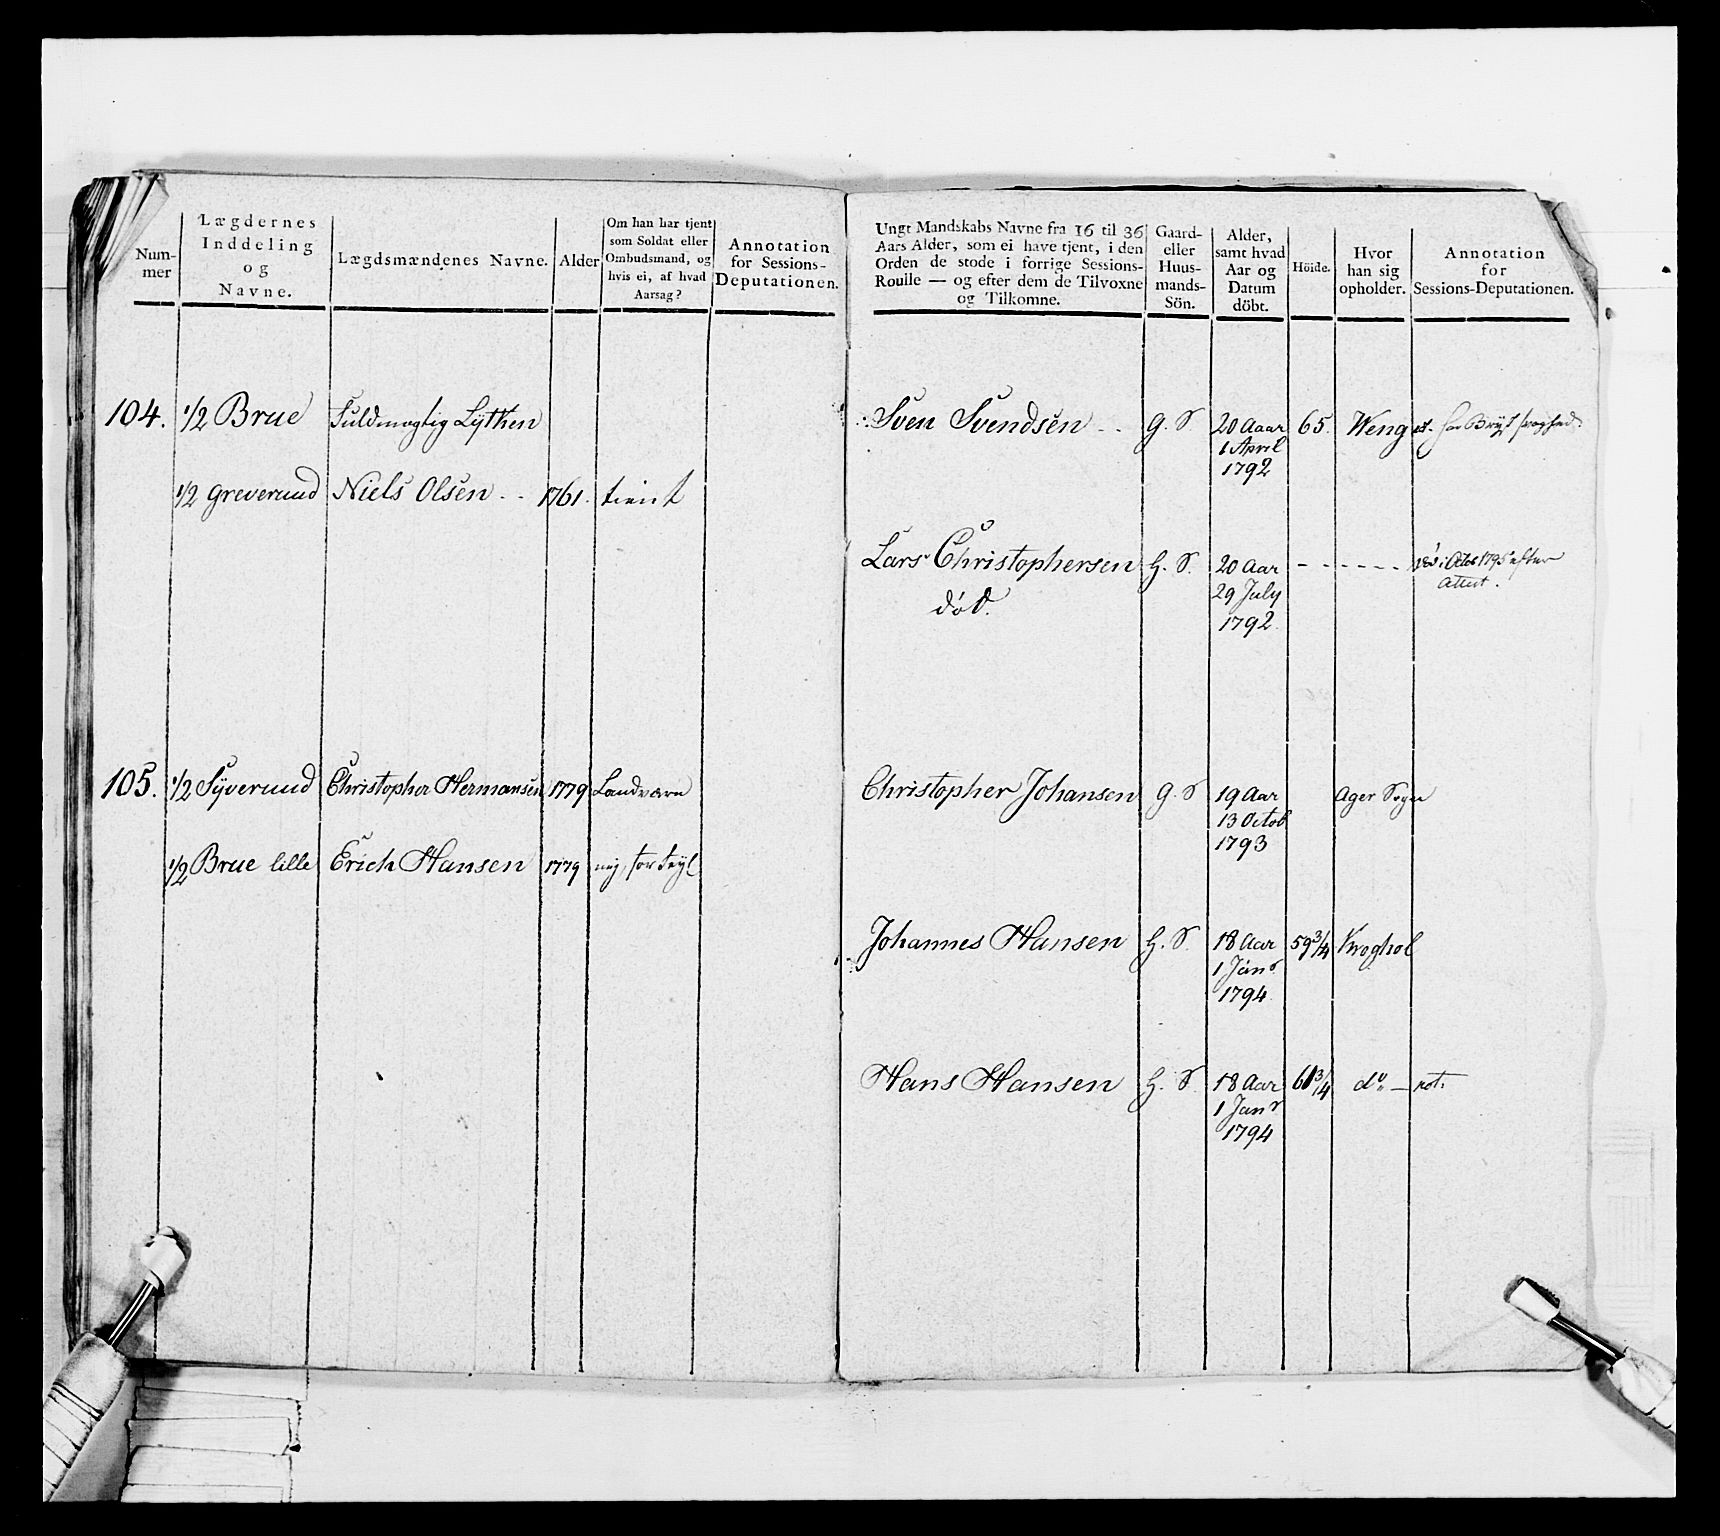 Num-
mer
Lægdernes
Inddeling
og
Navne.
Lægdsmændenes Navne.
Alder
Om han har tjent
som Soldat eller
Ombudsmand, og
hvis ei, af hvad
Aarsag?
Annotation
for Sessions-
Deputationen.
104. 1/2 Brue Fuldmægtig Lytken
1/2 Greverud Niels Olsen - - 1761. tient
105. 1/2 Syverud Christopher Hermansen 1779 Landværn
1/2 Brue lille Erich Hansen 1779
Ungt Mandskabs Navne fra 16 til 36
Aars Alder, som ei have tjent, i den
Orden de stode i forrige Sessions-
Roulle — og efter dem de Tilvoxne
og Tilkomne.
Gaard-
eller
Huus-
mands-
Sön.
Alder,
samt hvad
Aar og
Datum
döbt.
Höide.
Hvor
han sig
opholder.
Annotation
for
Sessions-Deputationen.
Sven Svendsen - - G. S 20 Aaar 65. Weng
1 April
1792
Lars Christophersen H. S. 20 Aar - - - - - - død i Octb 1795 efter
29 July Attest.
død. 1792
Christopher Johansen G. S 19 Aar Ager Sogn
13 Octob
1793
Johannes Hansen H. S. 18 Aar 59 3/4 Kroghol
1 Janr
1794
Hans Hansen H. S. 18 Aar 61 3/4 do — not.
1 Janr
1794